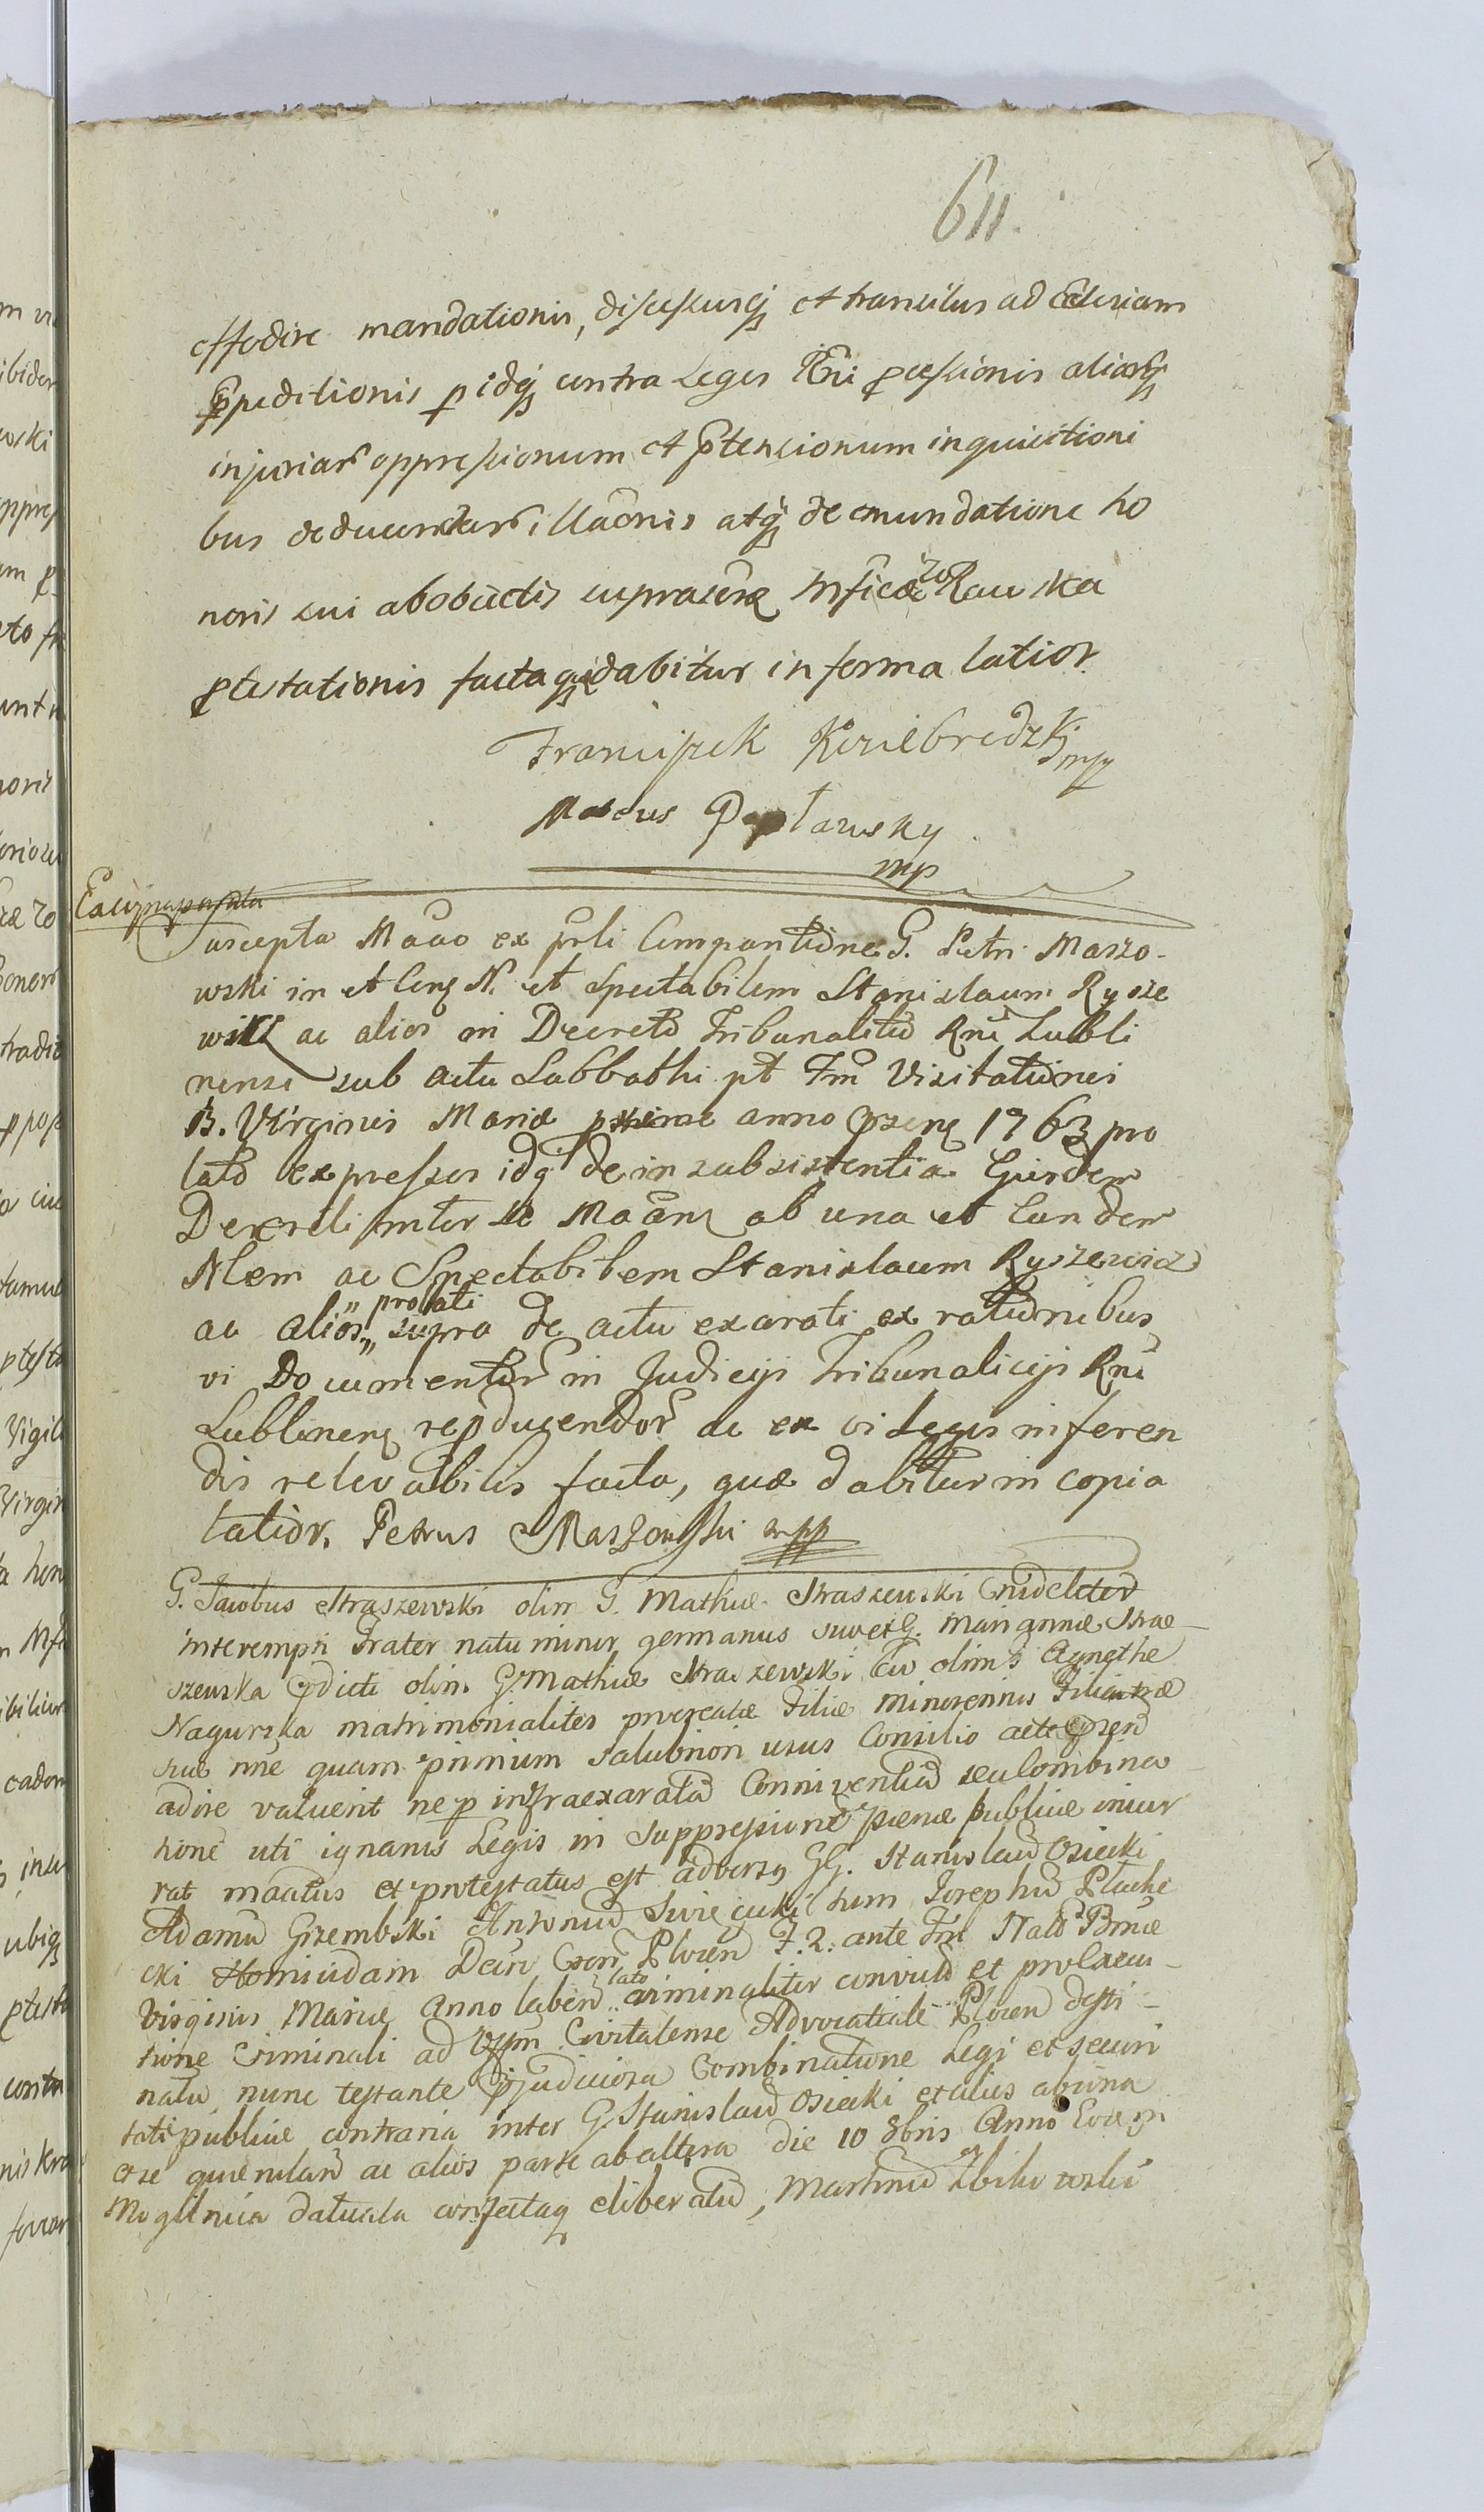 611.
effodire mandationis, discursusq et transitus ad Ecclesiam
Expeditionis p idq contra Leges Rni pcessionis aliarq
injuriar oppressionum et ptensionum inquisitioni
bus deducendar, illaonis atq de emundatione ho
noris sui ab obiectis suprascrip Mficae Rawska
ptestationis facta q dabitur in forma latior
Franciszek Koziebrodzki mp
Marcus Popławsky
mp
Suscepta Maao ex prli Compantione G. Petri Maszo-
wski in et Cons N. et Spectabilem Stanislaum Rysze
wicz ac alios in Decreto Tribunalitio Rni Lubli
nensi sub actu Sabbathi pt Fm Visitationis
B. Virginis Mariæ pxime anno prsens 1763 pro
lato expressos idq de insubsistentia Eiusdem
Decreti inter se Maans ab una et Eundem
Nlem ac Spectabilem Stanislaum Ryszewicz
ac alios „prolati„ supra de actu exarati ex rationibus
vi Documentor in Judicijs Tribunalicijs Rni
Lublinens repducendor ac ex vi Legis inferen
dis relevabilis facta, quæ dabitur in copia
latior. Petrus Maszowski mpp
G. Jacobus Straszewski olim G. Mathiæ Straszewski Crudeliter
interempti Frater natu minor germanus suo et G. Mariannæ Stra-
szewska pdicti olim G. Mathiæ Straszewski cu olim G Agnethe
Nagurska matrimonialiter procreatæ Filiæ minorennis Filiastræ
suæ nne quam primum salubriori usus Consilio acta prsen
adire valuerit ne p infraexaratã Conniventiã seu Combina
tione uti ignarus Legis in suppressione pænæ publicæ incur
rat maatus et protestatus est adversq GG. Stanislaũ Osiecki
Adamũ Grzembski Antoniũ Swięcicki tum Josephũ Pluche
cki Homicidam Decre Cson Plocen F. 2. ante Fm Natõ Bmæ
Virginis Mariæ Anno laben lato criminaliter convictũ et pro Execu-
tione Criminali ad Offm Civitatense Advocatiale Plocen desti-
natũ, nunc testante pjudiciosa Combinatione Legi et securi
tati publicæ contraria inter G. Stanislaũ Osiecki et alios ab una
ac alios parte ab altera die 10 8bris Anno
datuata confectaq eliberatũ, Martinũ